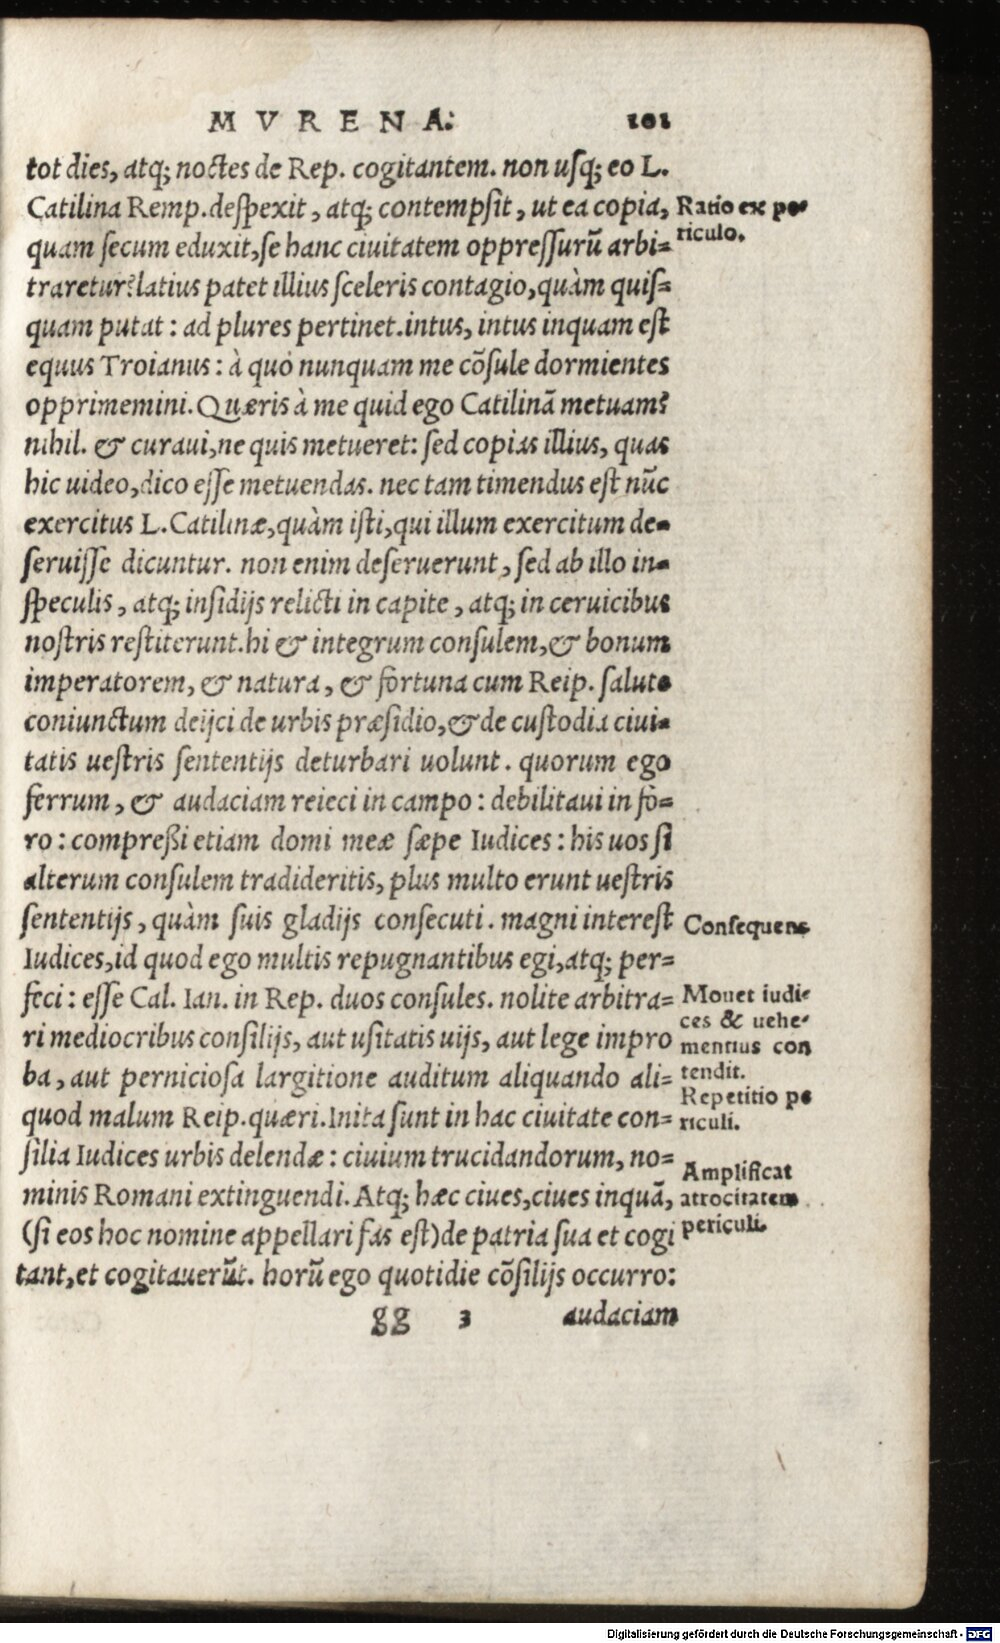 MVRENA. 101
tot dies, atq; noctes de Rep. cogitantem. non usq; eo L.
Catilina Remp. despexit, atq; contempsit, ut ea copia,
quam secum eduxit, se hanc ciuitatem oppressurũ arbi=
traretur? latius patet illius sceleris contagio, quàm quis=
quam putat: ad plures pertinet. intus, intus inquam est
equus Troianus: à quo nunquam me cõsule dormientes
opprimemini. Quæris à me quid ego Catilinã metuam?
nihil. & curaui, ne quis metueret: sed copias illius, quas
hic uideo, dico esse metuendas. nec tam timendus est nũc
exercitus L. Catilinæ, quàm isti, qui illum exercitum de=
seruisse dicuntur. non enim deseruerunt, sed ab illo in=
speculis, atq; insidijs relicti in capite, atq; in ceruicibus
nostris restiterunt. hi & integrum consulem, & bonum
imperatorem, & natura, & fortuna cum Reip. salute
coniunctum deijci de urbis præsidio, & de custodia ciui=
tatis uestris sententijs deturbari uolunt. quorum ego
ferrum, & audaciam reieci in campo: debilitaui in fo=
ro: compreßi etiam domi meæ sæpe Iudices: his uos si
alterum consulem tradideritis, plus multo erunt uestris
sententijs, quàm suis gladijs consecuti. magni interest
Iudices, id quod ego multis repugnantibus egi, atq; per=
feci: esse Cal. Ian. in Rep. duos consules. nolite arbitra=
ri mediocribus consilijs, aut usitatis uijs, aut lege impro
ba, aut perniciosa largitione auditum aliquando ali=
quod malum Reip. quæri. Inita sunt in hac ciuitate con=
silia Iudices urbis delendæ: ciuium trucidandorum, no=
minis Romani extinguendi. Atq; hæc ciues, ciues inquã,
(si eos hoc nomine appellari fas est) de patria sua et cogi
tant, et cogitauerũt. horũ ego quotidie cõsilijs occurro:
gg 3 audaciam
Ratio ex pe=
riculo.
Consequens
Mouet iudi=
ces & uehe=
mentius con
tendit.
Repetitio pe
riculi.
Amplificat
atrocitatem
periculi.
Digitalisierung gefördert durch die Deutsche Forschungsgemeinschaft - DFG